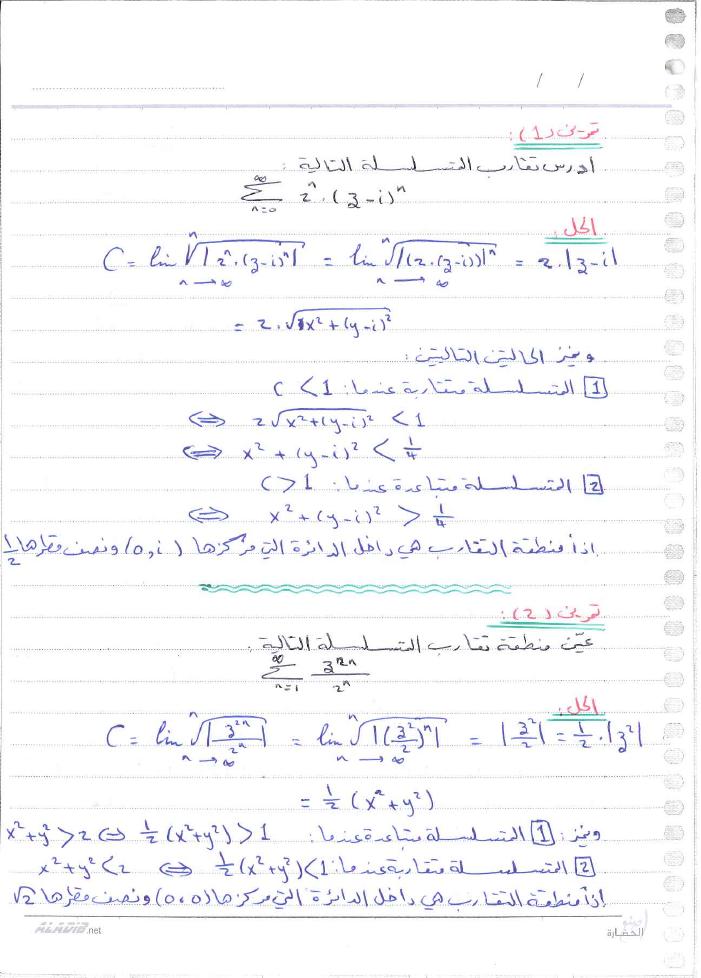 / /
تمرين (1):
ادرس تقارب المتسلسلة التالية:
∑_{n=0}^{∞} 2^n . (z-i)^n
الحل:
C = lim_{n→∞} ⁿ√|2^n.(z-i)^n| = lim_{n→∞} ⁿ√|(2.(z-i))|^n = 2.|z-i|
= 2.√x²+(y-i)²
ونميز الحالتين التاليتين:
1 المتسلسلة متقاربة عندما: C < 1
⇔ 2√x²+(y-i)² < 1
⇔ x² + (y-i)² < 1/4
2 المتسلسلة متباعدة عندما: C > 1
⇔ x²+(y-i)² > 1/4
إذاً منطقة التقارب هي داخل الدائرة التي مركزها (0,i) ونصف قطرها 1/2
تمرين (2):
عيّن منطقة تقارب المتسلسلة التالية:
∑_{n=1}^{∞} z^{2n}/2^n
الحل:
C = lim_{n→∞} ⁿ√|z^{2n}/2^n| = lim_{n→∞} ⁿ√|(z²/2)^n| = |z²/2| = 1/2 .|z²|
= 1/2 (x²+y²)
ونميز: 1 المتسلسلة متباعدة عندما: x²+y²>2 ⇔ 1/2(x²+y²)>1
2 المتسلسلة متقاربة عندما: x²+y²<2 ⇔ 1/2(x²+y²)<1
إذاً منطقة التقارب هي داخل الدائرة التي مركزها (0,0) ونصف قطرها √2
ALADIB.net
الحضارة